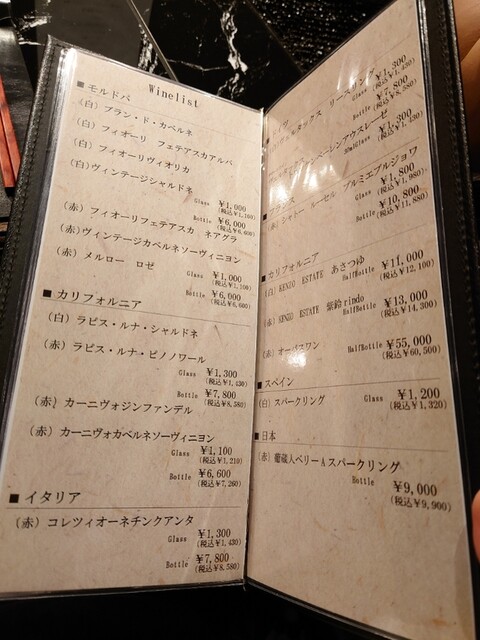 Winelist
■モルドバ
(白) ブラン・ド・カベルネ
(白) フィオーリ フェテアスカアルバ
(白) フィオーリヴィオリカ
(白)ヴィンテージシャルドネ
Glass ¥1,000
(税込¥1,100)
Bottle ¥6,000
(税込¥6,600)
(赤) フィオーリフェテアスカ ネアグラ
(赤)ヴィンテージカベルネソーヴィニヨン
(赤) メルロー ロゼ
Glass ¥1,000
(税込¥1,100)
Bottle ¥6,000
(税込¥6,600)
■カリフォルニア
(白) ラピス・ルナ・シャルドネ
(赤) ラピス・ルナ・ピノノワール
Glass ¥1,300
(税込¥1,430)
Bottle ¥7,800
(税込¥8,580)
(赤) カーニヴォジンファンデル
(赤) カーニヴォカベルネソーヴィニヨン
Glass ¥1,100
(税込¥1,210)
Bottle ¥6,600
(税込¥7,260)
■イタリア
(赤) コレツィオーネチンクアンタ
Glass ¥1,300
(税込¥1,430)
Bottle ¥7,800
(税込¥8,580)
リースリング
Glass ¥1,300
(税込¥1,430)
Bottle ¥7,800
(税込¥8,580)
ベーレンアウスレーゼ
30mlGlass ¥1,300
(税込¥1,430)
(赤) シャトー・ルーセル プルミエブルジョワ
Glass ¥1,800
(税込¥1,980)
Bottle ¥10,800
(税込¥11,880)
■カリフォルニア
(白) KENZO ESTATE あさつゆ
HalfBottle ¥11,000
(税込¥12,100)
(赤) KENZO ESTATE 紫鈴 rindo
HalfBottle ¥13,000
(税込¥14,300)
(赤) オーパスワン
HalfBottle ¥55,000
(税込¥60,500)
■スペイン
(白) スパークリング Glass ¥1,200
(税込¥1,320)
■日本
(赤) 蘭蔵人ベリーAスパークリング
Bottle ¥9,000
(税込¥9,900)